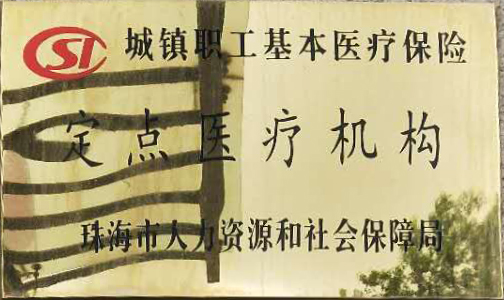 SI 城镇职工基本医疗保险
定点医疗机构
珠海市人力资源和社会保障局